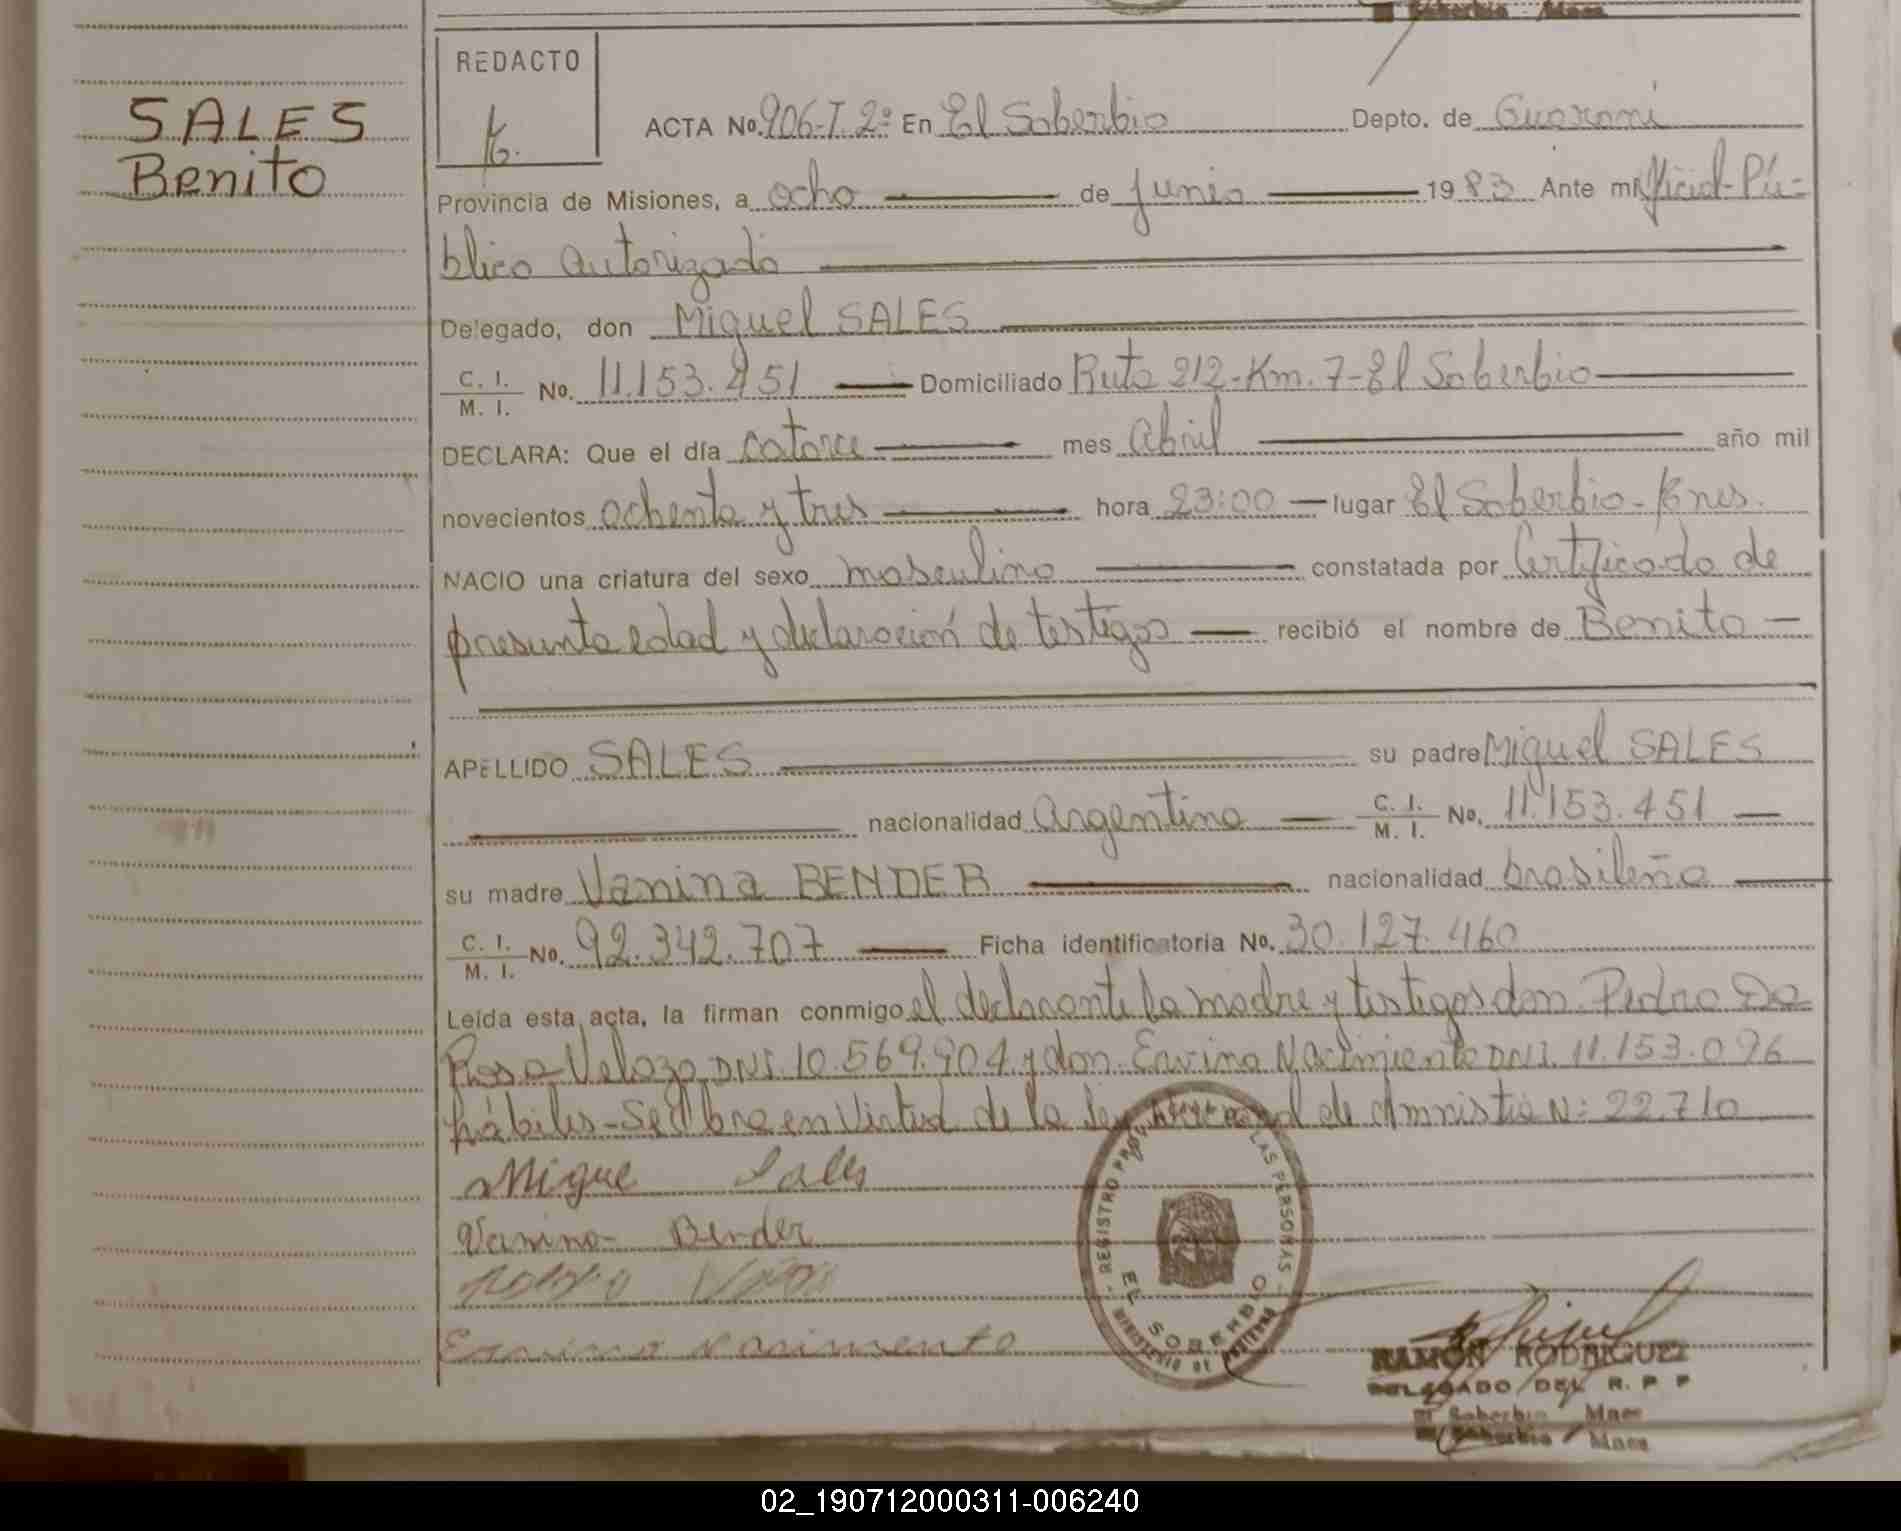 SALES
Benito
REDACTO
ACTA No. 906-T.2º En El Soberbio Depto. de Guaraní
Provincia de Misiones, a ocho de junio 1983 Ante mí Oficial Pú-
blico Autorizado
Delegado, don Miguel SALES
C. I. M. I. No. 11.153.451 Domiciliado Ruta 212-Km. 7-El Soberbio
DECLARA: Que el día catorce mes Abril año mil
novecientos ochenta y tres hora 23:00 lugar El Soberbio-
NACIO una criatura del sexo masculino constatada por Certificado de
presunta edad y declaración de testigos recibió el nombre de Benito
APELLIDO SALES su padre Miguel SALES
nacionalidad Argentina C. I. M. I. No. 11.153.451
su madre Vanina BENDER nacionalidad brasileña
C. I. M. I. No. 92.342.707 Ficha identificatoria No. 30.127.460
Leída esta acta, la firman conmigo el declarante la madre y testigos don Pedro Da
Rosa Velozo DNI. 10.569.904 y don Ervino Nacimiento DNI. 11.153.096
hábiles-Se labra en Virtud de la Ley Nacional de Amnistia N: 22.710
Migue Sales
Vanina Bender
Ervino Nasimento
REGISTRO PROV. DE LAS PERSONAS
EL SOBERBIO
MINISTERIO DE GOBIERNO
RAMON RODRIGUEZ
DELEGADO DEL R. P. P
El Soberbio Mnes
El Soberbio Mnes
02_190712000311-006240